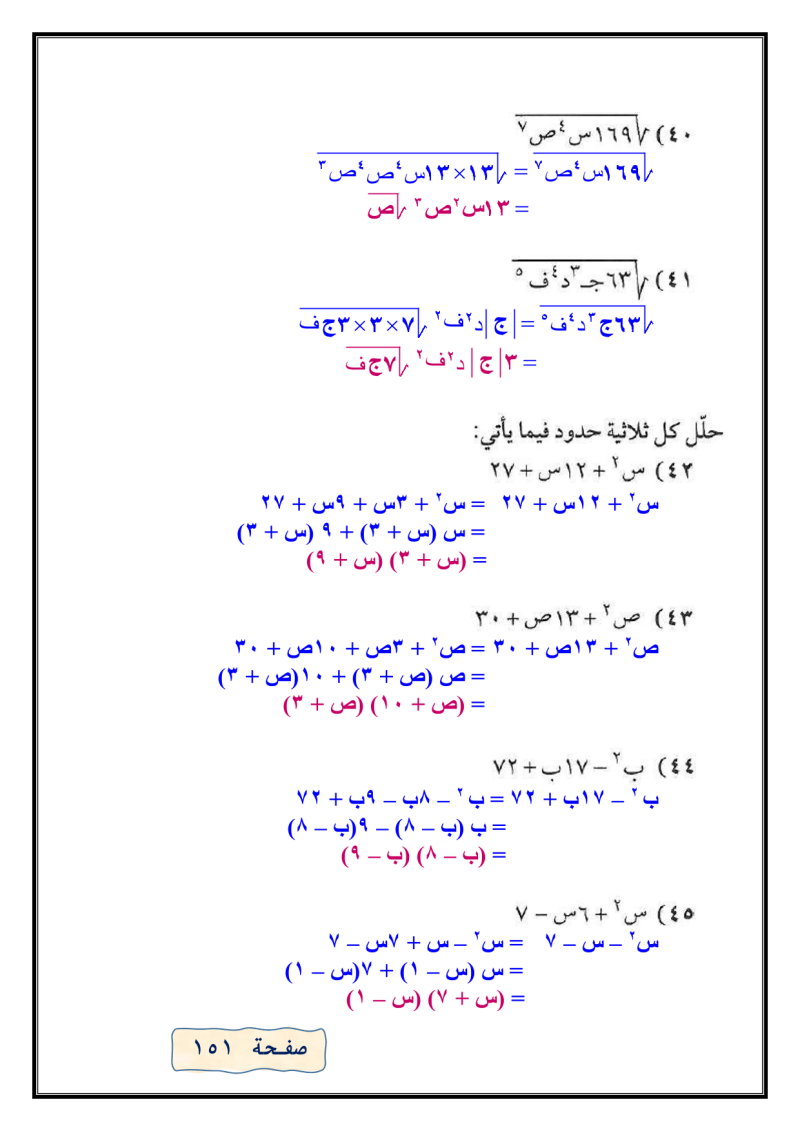 ٤٠) √١٦٩س⁴ص⁷
√١٦٩س⁴ص⁷ = √١٣×١٣س⁴ص⁴ص³
= ١٣س²ص³ √ص
٤١) √٦٣جـ³د⁴ف⁵
√٦٣ج³د⁴ف⁵ = |ج|د²ف² √٧×٣×٣ج ف
= ٣|ج|د²ف² √٧ج ف
حلّل كل ثلاثية حدود فيما يأتي:
٤٢) س² + ١٢س + ٢٧
س² + ١٢س + ٢٧ = س² + ٣س + ٩س + ٢٧
= س (س + ٣) + ٩ (س + ٣)
= (س + ٣) (س + ٩)
٤٣) ص² + ١٣ص + ٣٠
ص² + ١٣ص + ٣٠ = ص² + ٣ص + ١٠ص + ٣٠
= ص (ص + ٣) + ١٠(ص + ٣)
= (ص + ١٠) (ص + ٣)
٤٤) ب² – ١٧ب + ٧٢
ب² – ١٧ب + ٧٢ = ب² – ٨ب – ٩ب + ٧٢
= ب (ب – ٨) – ٩(ب – ٨)
= (ب – ٨) (ب – ٩)
٤٥) س² + ٦س – ٧
س² – س – ٧ = س² – س + ٧س – ٧
= س (س – ١) + ٧(س – ١)
= (س + ٧) (س – ١)
صفحة ١٥١